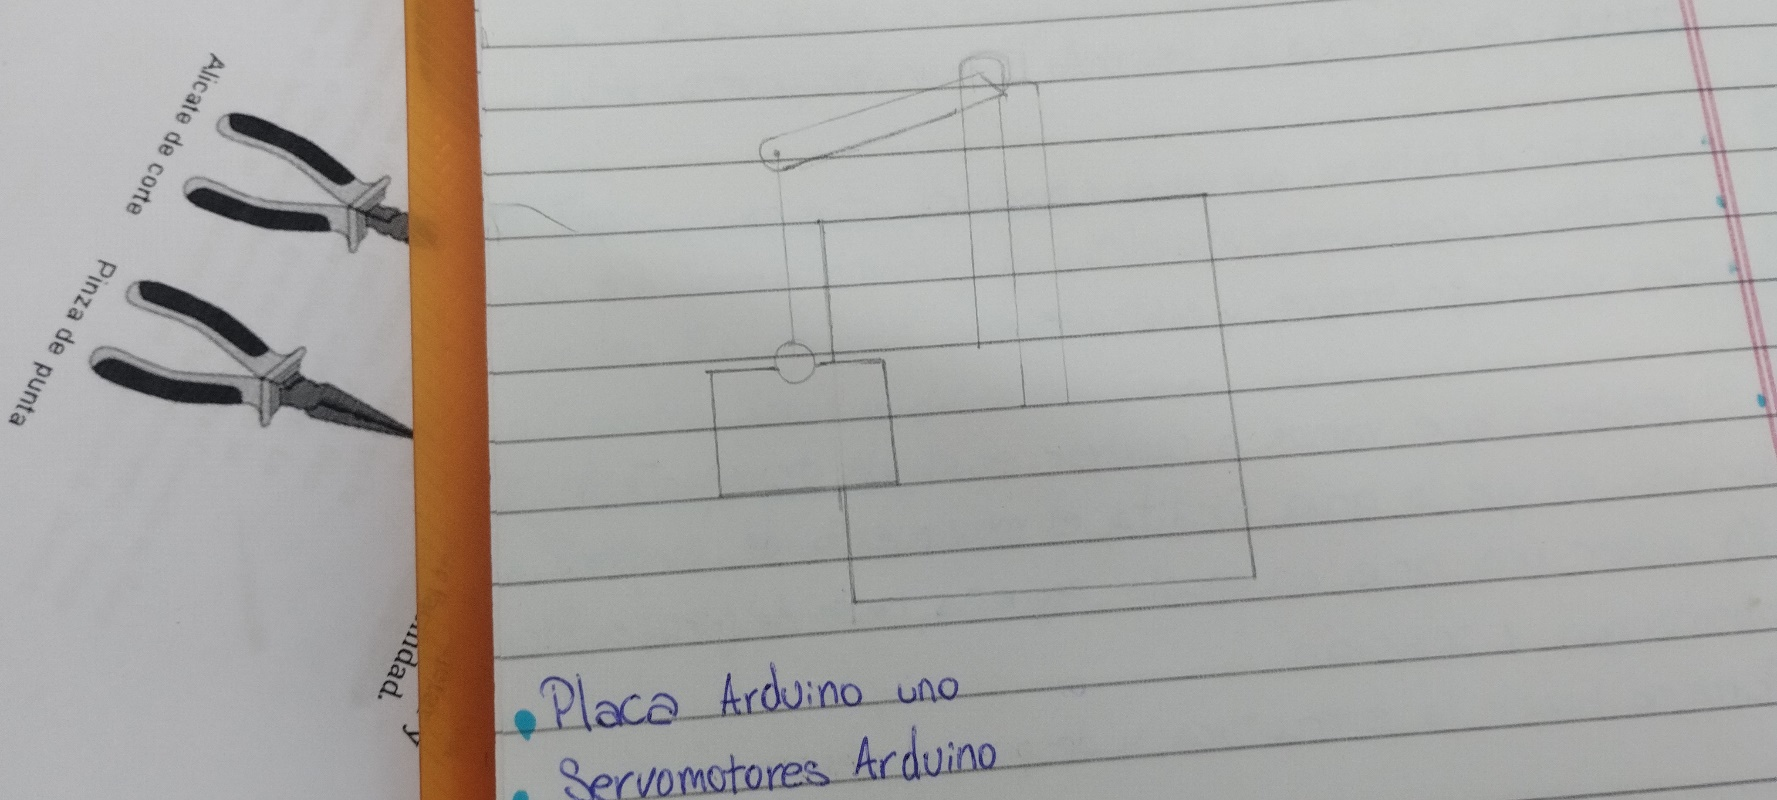 Alicate de corte
Pinza de punta
Placa Arduino uno
Servomotores Arduino